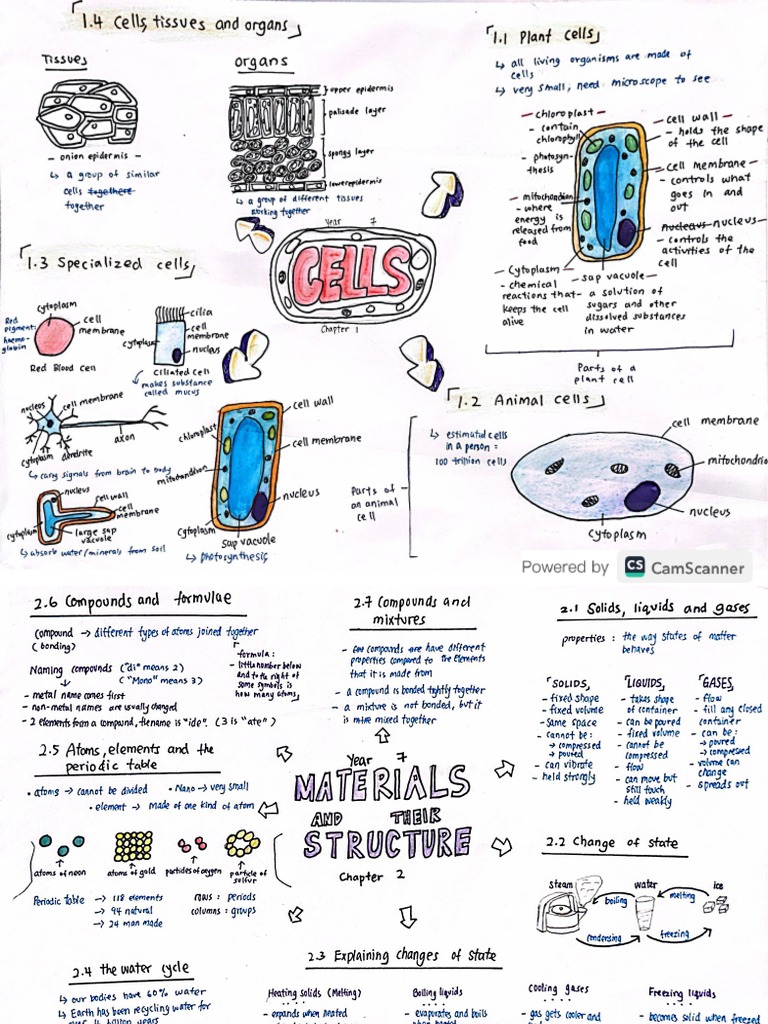 1.4 Cells, tissues and organs
Tissues
- onion epidermis -
↳ a group of similar
cells together
together
organs
upper epidermis
palisade layer
spongy layer
lowerepidermis
↳ a group of different tissues
working together
1.1 Plant cells
↳ all living organisms are made of
cells
↳ very small, need microscope to see
- chloroplast -
- contain
chlorophyll
- photosyn-
thesis
- mitochondrion
- where
energy is
released from
food
- Cytoplasm -
- chemical
reactions that
keeps the cell
alive
- cell wall -
- holds the shape
of the cell
- cell membrane -
- controls what
goes in and
out
nucleus nucleus -
- controls the
activities of the
cell
- sap vacuole -
- a solution of
sugars and other
dissolved substances
in water
Parts of a
plant cell
Year 7
CELLS
Chapter 1
1.3 Specialized cells
Red
pigment:
haemo-
globin
cytoplasm
cell
membrane
Red Blood cell
cilia
cell
membrane
cytoplasm
nucleus
Ciliated cell
↳ makes substance
called mucus
nucleus
cell membrane
cytoplasm
dendrite
axon
↳ carry signals from brain to body
nucleus
cell wall
cell
membrane
cytoplasm
large sap
vacuole
↳ absorb water/minerals from soil
cell wall
chloroplast
cell membrane
mitochondrion
nucleus
Cytoplasm
sap vacuole
↳ photosynthesis
1.2 Animal cells
↳ estimated cells
in a person =
100 trillion cells
Parts of
an animal
cell
cell membrane
mitochondrio
nucleus
cytoplasm
Powered by CS CamScanner
2.6 Compounds and formulae
compound → different types of atoms joined together
(bonding)
Naming compounds ("di" means 2)
("Mono" means 3)
- metal name comes first
- non-metal names are usually changed
- 2 elements form a compound, the name is "ide". (3 is "ate")
formula:
- little number below
and to the right of
some symbols is
how many atoms
2.7 Compounds and
mixtures
- compounds are have different
properties compared to the elements
that it is made from
- a compound is bonded tightly together
- a mixture is not bonded, but it
is more mixed together
2.1 Solids, liquids and gases
properties : the way states of matter
behaves
SOLIDS
- fixed shape
- fixed volume
- same space
- cannot be:
→ compressed
→ poured
- can vibrate
- held strongly
LIQUIDS
- takes shape
of container
- can be poured
- fixed volume
- cannot be
compressed
- flow
- can move but
still touch
- held weakly
GASES
- flow
- fill any closed
container
- can be:
→ poured
→ compressed
- volume can
change
- spreads out
2.5 Atoms, elements and the
periodic table
• atoms → cannot be divided
• Nano → very small
• element → Made of one kind of atom
atoms of neon
atoms of gold
particles of oxygen
particle of
sulfur
Periodic Table → 118 elements
→ 94 natural
→ 24 man made
rows : periods
columns : groups
Year 7
MATERIALS
AND THEIR
STRUCTURE
Chapter 2
2.2 Change of state
steam
water
ice
boiling
melting
condensing
freezing
2.4 the water cycle
↳ our bodies have 60% water
↳ Earth has been recycling water for
over 4 billion years
2.3 Explaining changes of state
Heating solids (Melting)
- expands when heated
Boiling liquids
- evaporates and boils
when heated
Cooling gases
- gas gets cooler and
Freezing liquids
- becomes solid when freezed